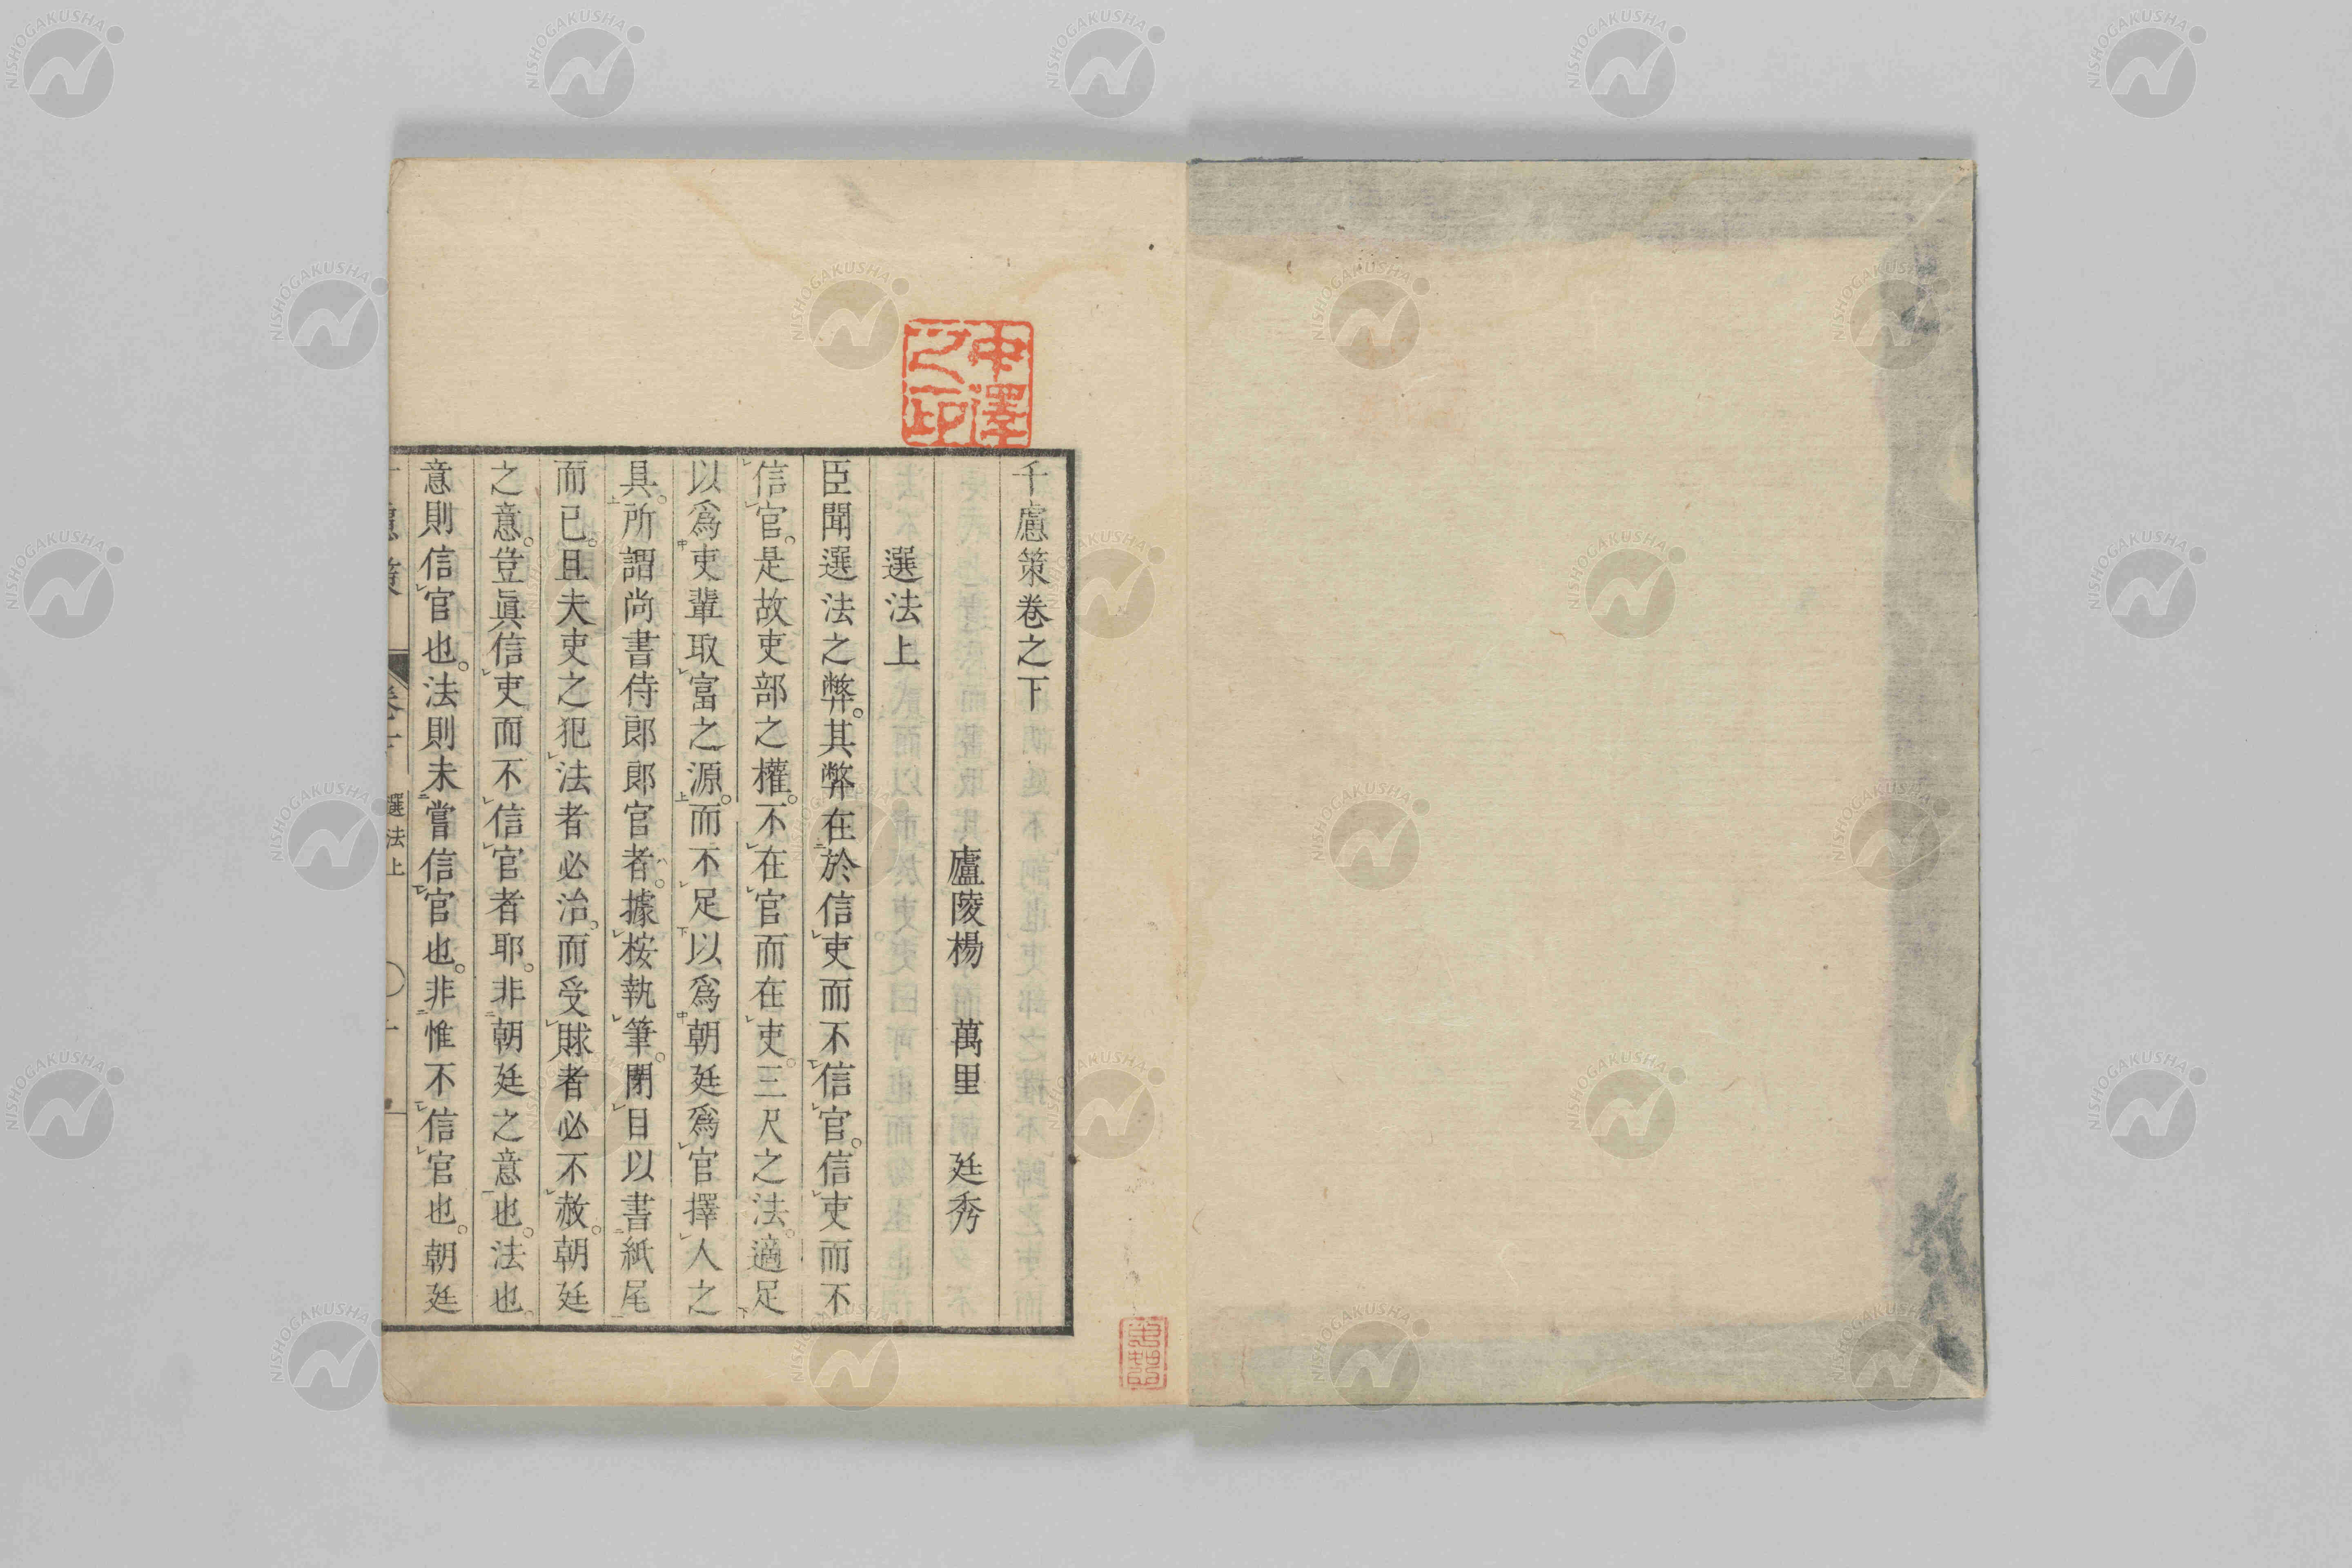 千慮策卷之下
廬陵楊 萬里 廷秀
選法上
臣聞選法之弊。其弊在於信吏而不信官。信吏而不
信官。是故吏部之權。不在官而在吏。三尺之法。適足
以爲吏輩取富之源。而不足以爲朝廷爲官擇人之
具。所謂尚書侍郎郎官者。據桉執筆。閉目以書紙尾
而已。且夫吏之犯法者必治。而受賕者必不赦。朝廷
之意。豈眞信吏而不信官者耶。非朝廷之意也。法也。
意則信官也。法則未嘗信官也。非惟不信官也。朝廷
選法上
中澤之印
NISHOGAKUSHA